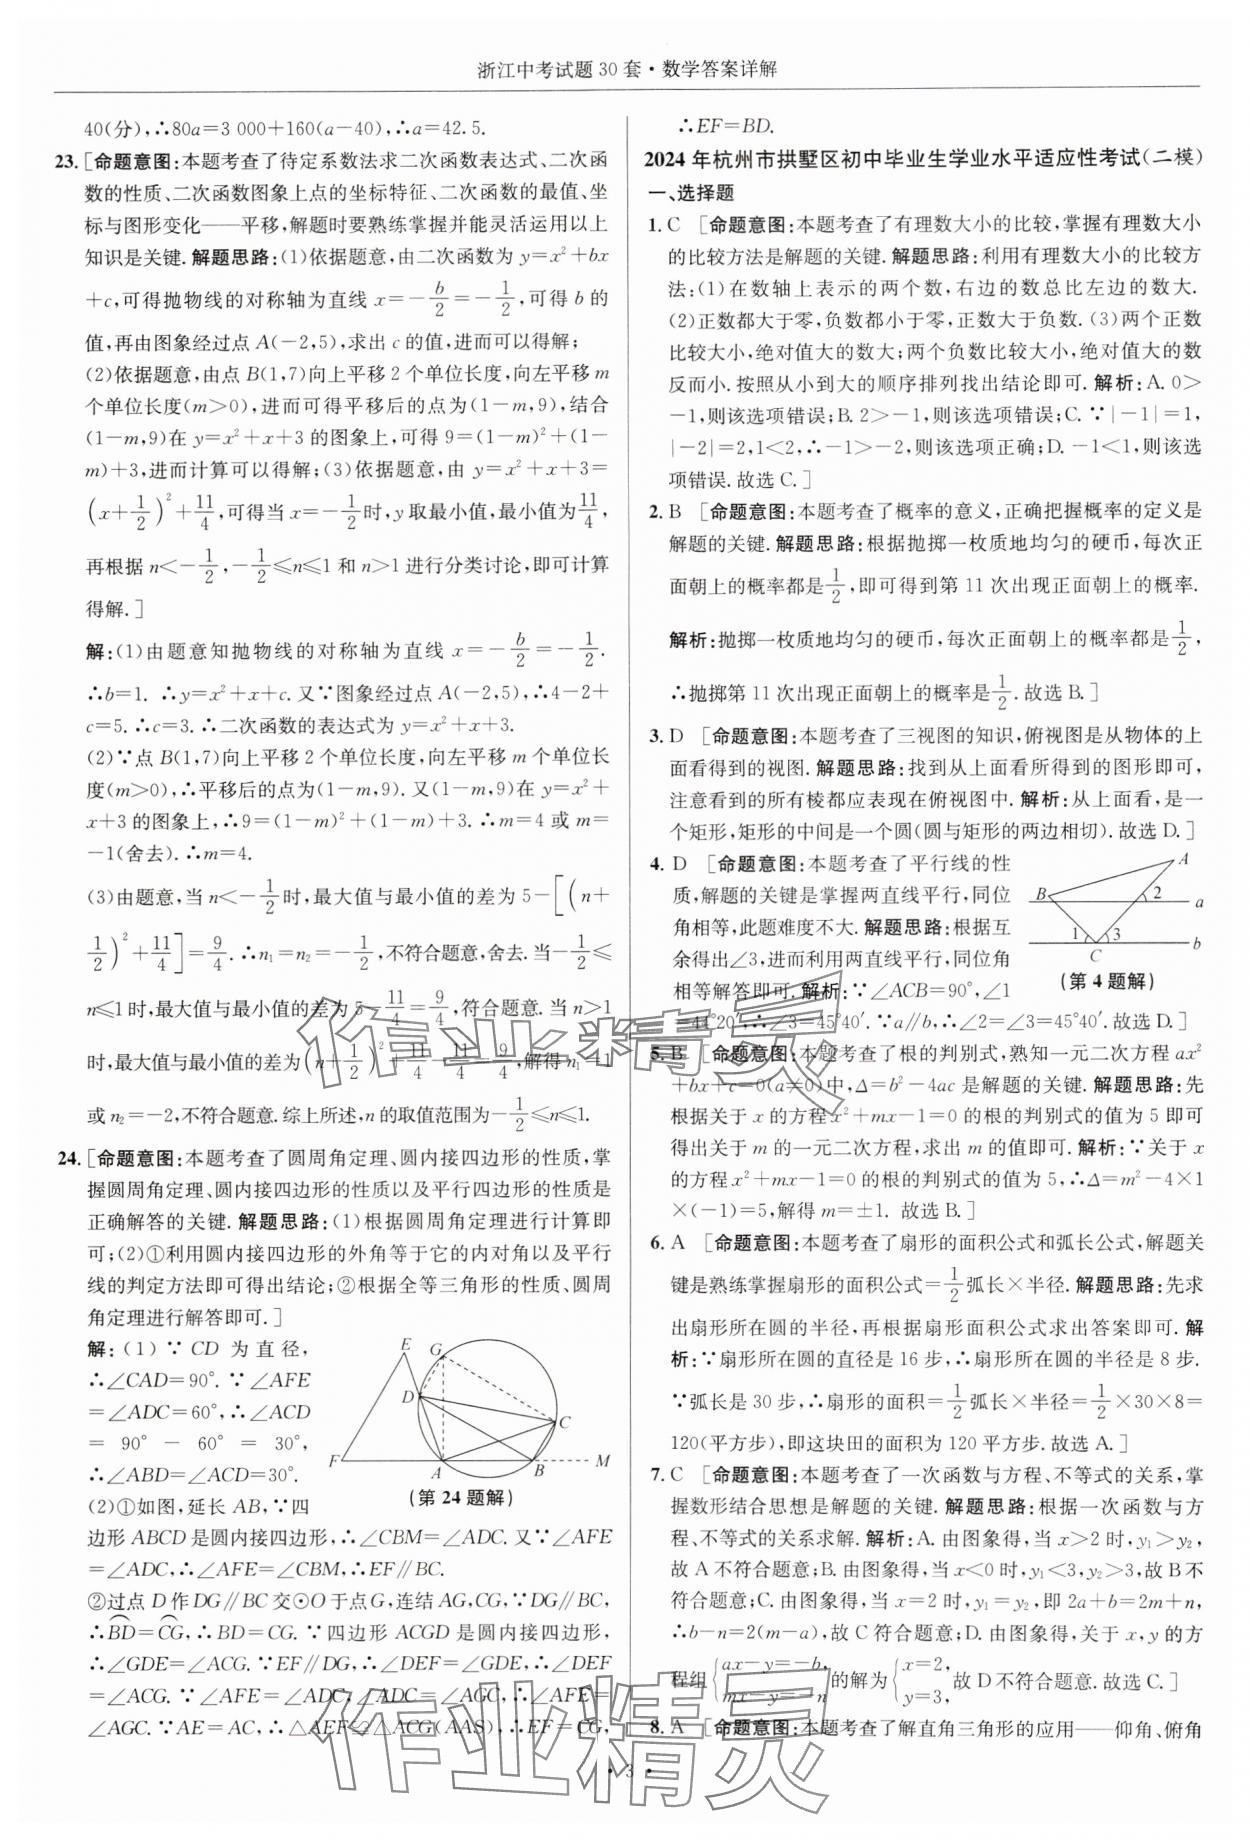 浙江中考试题 30 套·数学答案详解
40(分),∴80a=3 000+160(a-40),∴a=42.5.
23. [命题意图:本题考查了待定系数法求二次函数表达式、二次函
数的性质、二次函数图象上点的坐标特征、二次函数的最值、坐
标与图形变化——平移,解题时要熟练掌握并能灵活运用以上
知识是关键. 解题思路:(1)依据题意,由二次函数为 y=x²+bx
+c,可得抛物线的对称轴为直线 x=-b/2=-1/2,可得 b 的
值,再由图象经过点 A(-2,5),求出 c 的值,进而可以得解;
(2)依据题意,由点 B(1,7)向上平移 2 个单位长度,向左平移 m
个单位长度(m>0),进而可得平移后的点为(1-m,9),结合
(1-m,9)在 y=x²+x+3 的图象上,可得 9=(1-m)²+(1-
m)+3,进而计算可以得解;(3)依据题意,由 y=x²+x+3=
(x+1/2)²+11/4,可得当 x=-1/2时,y 取最小值,最小值为11/4,
再根据 n<-1/2,-1/2≤n≤1 和 n>1 进行分类讨论,即可计算
得解. ]
解:(1)由题意知抛物线的对称轴为直线 x=-b/2=-1/2.
∴b=1. ∴y=x²+x+c. 又∵图象经过点 A(-2,5),∴4-2+
c=5. ∴c=3. ∴二次函数的表达式为 y=x²+x+3.
(2)∵点 B(1,7)向上平移 2 个单位长度,向左平移 m 个单位长
度(m>0),∴平移后的点为(1-m,9). 又(1-m,9)在 y=x²+
x+3 的图象上,∴9=(1-m)²+(1-m)+3. ∴m=4 或 m=
-1(舍去). ∴m=4.
(3)由题意,当 n<-1/2时,最大值与最小值的差为 5-[(n+
1/2)²+11/4]=9/4. ∴n₁=n₂=-1/2,不符合题意,舍去. 当-1/2≤
n≤1 时,最大值与最小值的差为 5-11/4=9/4,符合题意. 当 n>1
时,最大值与最小值的差为(n+1/2)²+11/4-11/4=9/4,解得 n₁=1
或 n₂=-2,不符合题意. 综上所述,n 的取值范围为-1/2≤n≤1.
24. [命题意图:本题考查了圆周角定理、圆内接四边形的性质,掌
握圆周角定理、圆内接四边形的性质以及平行四边形的性质是
正确解答的关键. 解题思路:(1)根据圆周角定理进行计算即
可;(2)①利用圆内接四边形的外角等于它的内对角以及平行
线的判定方法即可得出结论;②根据全等三角形的性质、圆周
角定理进行解答即可. ]
解:(1)∵CD 为直径,
∴∠CAD=90°. ∵∠AFE
=∠ADC=60°,∴∠ACD
= 90° - 60° = 30°,
∴∠ABD=∠ACD=30°.
(2)①如图,延长 AB,∵四
E
G
D
C
F
A
B
M
(第 24 题解)
边形 ABCD 是圆内接四边形,∴∠CBM=∠ADC. 又∵∠AFE
=∠ADC,∴∠AFE=∠CBM,∴EF∥BC.
②过点 D 作 DG∥BC 交⊙O 于点 G,连结 AG,CG,∵DG∥BC,
∴BD⌒=CG⌒,∴BD=CG. ∵四边形 ACGD 是圆内接四边形,
∴∠GDE=∠ACG. ∵EF∥DG,∴∠DEF=∠GDE,∴∠DEF
=∠ACG. ∵∠AFE=∠ADC,∠ADC=∠AGC,∴∠AFE=
∠AGC. ∵AE=AC,∴△AEF≌△ACG(AAS),∴EF=CG,
∴EF=BD.
2024 年杭州市拱墅区初中毕业生学业水平适应性考试(二模)
一、选择题
1. C [命题意图:本题考查了有理数大小的比较,掌握有理数大小
的比较方法是解题的关键. 解题思路:利用有理数大小的比较方
法:(1)在数轴上表示的两个数,右边的数总比左边的数大.
(2)正数都大于零,负数都小于零,正数大于负数. (3)两个正数
比较大小,绝对值大的数大;两个负数比较大小,绝对值大的数
反而小. 按照从小到大的顺序排列找出结论即可. 解析:A. 0>
-1,则该选项错误;B. 2>-1,则该选项错误;C. ∵|-1|=1,
|-2|=2,1<2,∴-1>-2,则该选项正确;D. -1<1,则该选
项错误. 故选 C. ]
2. B [命题意图:本题考查了概率的意义,正确把握概率的定义是
解题的关键. 解题思路:根据抛掷一枚质地均匀的硬币,每次正
面朝上的概率都是1/2,即可得到第 11 次出现正面朝上的概率.
解析:抛掷一枚质地均匀的硬币,每次正面朝上的概率都是1/2,
∴抛掷第 11 次出现正面朝上的概率是1/2. 故选 B. ]
3. D [命题意图:本题考查了三视图的知识,俯视图是从物体的上
面看得到的视图. 解题思路:找到从上面看所得到的图形即可,
注意看到的所有棱都应表现在俯视图中. 解析:从上面看,是一
个矩形,矩形的中间是一个圆(圆与矩形的两边相切). 故选 D. ]
4. D [命题意图:本题考查了平行线的性
质,解题的关键是掌握两直线平行,同位
角相等,此题难度不大. 解题思路:根据互
余得出∠3,进而利用两直线平行,同位角
相等解答即可. 解析:∵∠ACB=90°,∠1
A
B
2
a
1
3
b
C
(第 4 题解)
=44°20′,∴∠3=45°40′. ∵a∥b,∴∠2=∠3=45°40′. 故选 D. ]
5. B [命题意图:本题考查了根的判别式,熟知一元二次方程 ax²
+bx+c=0(a≠0)中,Δ=b²-4ac 是解题的关键. 解题思路:先
根据关于 x 的方程 x²+mx-1=0 的根的判别式的值为 5 即可
得出关于 m 的一元二次方程,求出 m 的值即可. 解析:∵关于 x
的方程 x²+mx-1=0 的根的判别式的值为 5,∴Δ=m²-4×1
×(-1)=5,解得 m=±1. 故选 B. ]
6. A [命题意图:本题考查了扇形的面积公式和弧长公式,解题关
键是熟练掌握扇形的面积公式=1/2弧长×半径. 解题思路:先求
出扇形所在圆的半径,再根据扇形面积公式求出答案即可. 解
析:∵扇形所在圆的直径是 16 步,∴扇形所在圆的半径是 8 步.
∵弧长是 30 步,∴扇形的面积=1/2弧长×半径=1/2×30×8=
120(平方步),即这块田的面积为 120 平方步. 故选 A. ]
7. C [命题意图:本题考查了一次函数与方程、不等式的关系,掌
握数形结合思想是解题的关键. 解题思路:根据一次函数与方
程、不等式的关系求解. 解析:A. 由图象得,当 x>2 时,y₁>y₂,
故 A 不符合题意;B. 由图象得,当 x<0 时,y₁<3,y₂>3,故 B 不
符合题意;C. 由图象得,当 x=2 时,y₁=y₂,即 2a+b=2m+n,
∴b-n=2(m-a),故 C 符合题意;D. 由图象得,关于 x,y 的方
程组{ax-y=-b, mx-y=-n的解为{x=2, y=3,故 D 不符合题意. 故选 C. ]
8. A [命题意图:本题考查了解直角三角形的应用——仰角、俯角
• 3 •
作业精灵
作业精灵